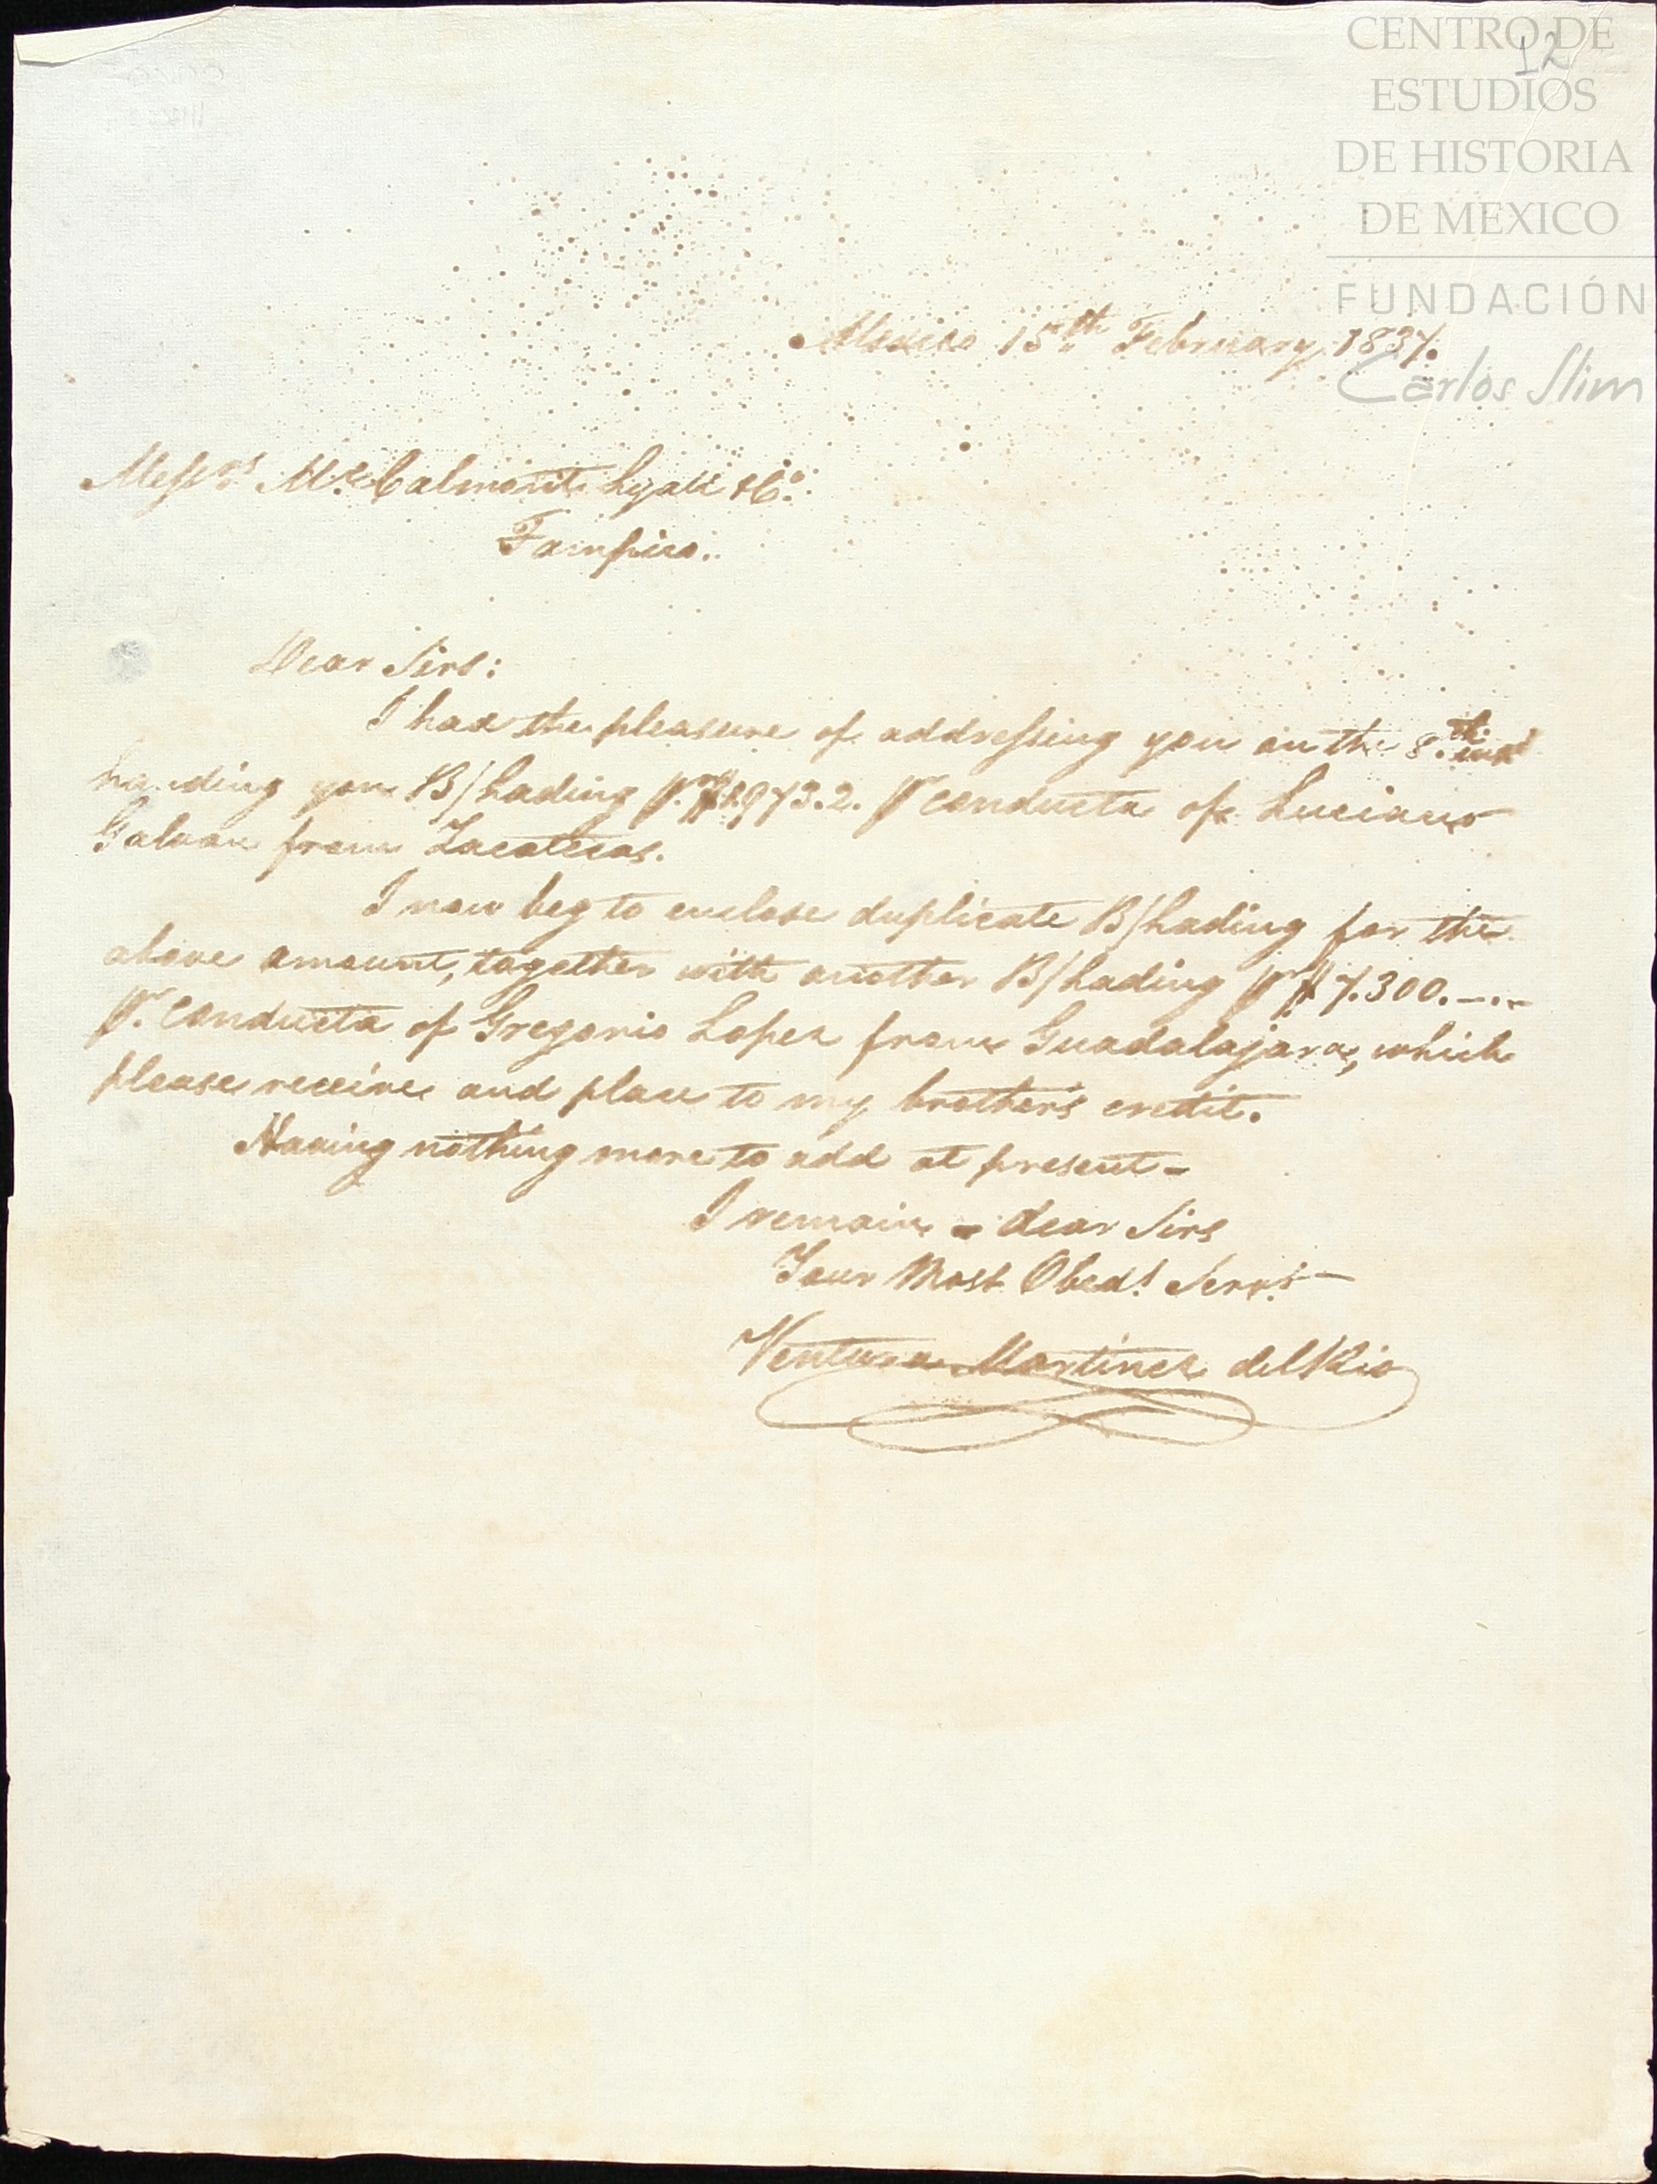 CENTRO DE
ESTUDIOS
DE HISTORIA
DE MEXICO
FUNDACIÓN
Carlos Slim
12
Mexico 15th February 1837.
Messrs. Mc.Calmont Lyall &Co.
Tampico.
Dear Sirs:
I had the pleasure of addressing you on the 8th. inst
handing you B/Lading pr. $ 1973.2. pr conducta of Luciano
Galvan from Zacatecas.
I now beg to enclose duplicate B/Lading for the
above amount, together with another B/Lading pr $ 7.300.-.-
pr. conducta of Gregorio Lopez from Guadalajara, which
please receive and place to my brother's credit.
Having nothing more to add at present-
I remain - dear Sirs
Your Most Obedt. Servt.-
Ventura Martinez del Rio